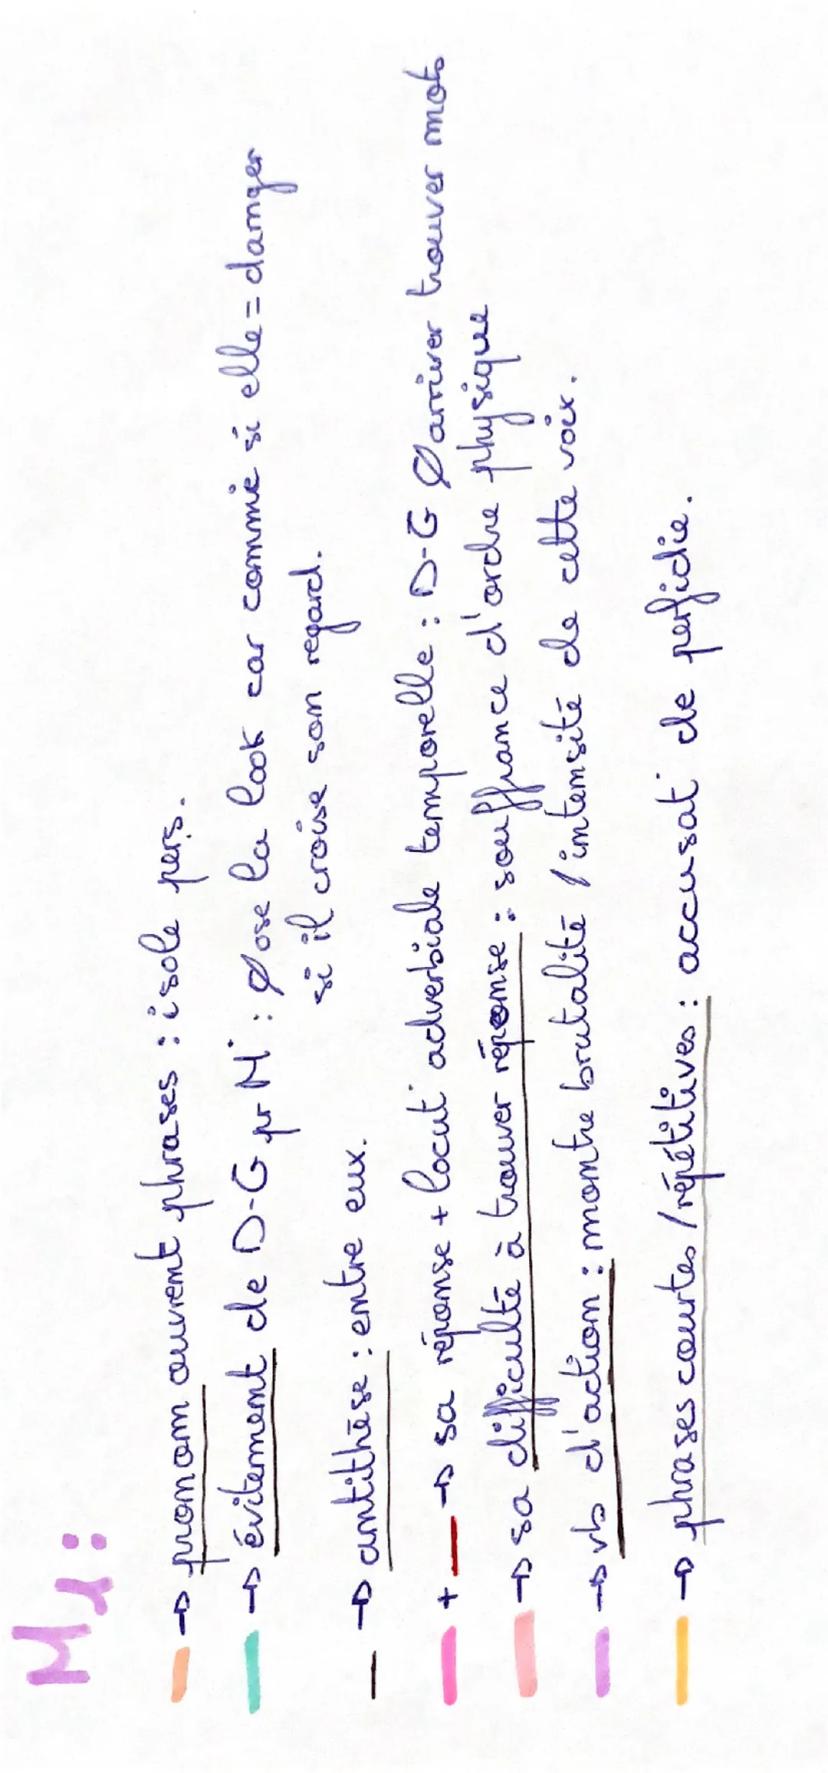 M1:
→ pronom ouvrent phrases : isole pers.
→ évitement de D-G pr M : Ø ose la look car comme si elle = danger
si il croise son regard.
→ antithèse : entre eux.
+ → sa réponse + locut° adverbiale temporelle : D-G Ø arriver trouver mots
→ sa difficulté à trouver réponse : souffrance d'ordre physique
→ vb d'action : montre brutalité / intensité de cette voix.
→ phrases courtes / répétitives : accusat° de perfidie.